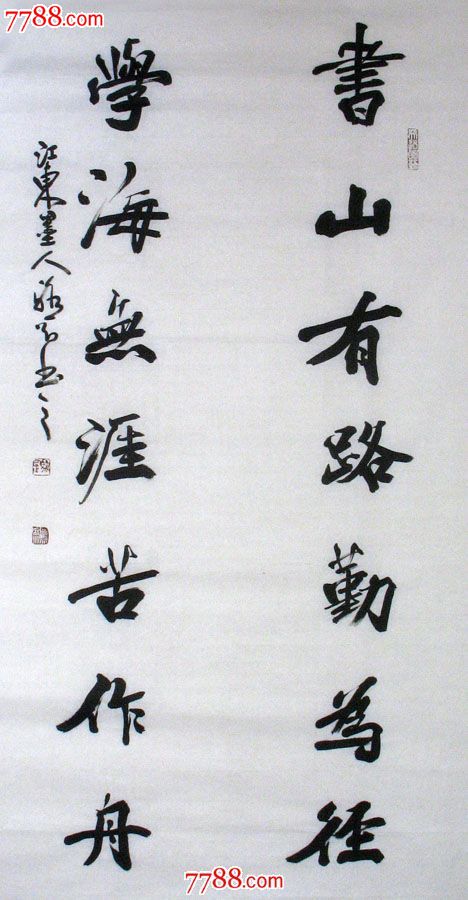 7788.com
書山有路勤為徑
學海無涯苦作舟
江東墨人
書之
7788.com